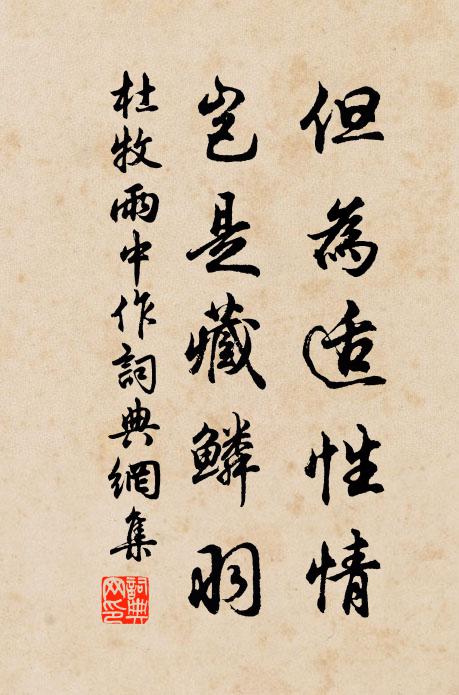 但為适性情
豈是藏鱗羽
杜牧雨中作詞典網集
詞典网印